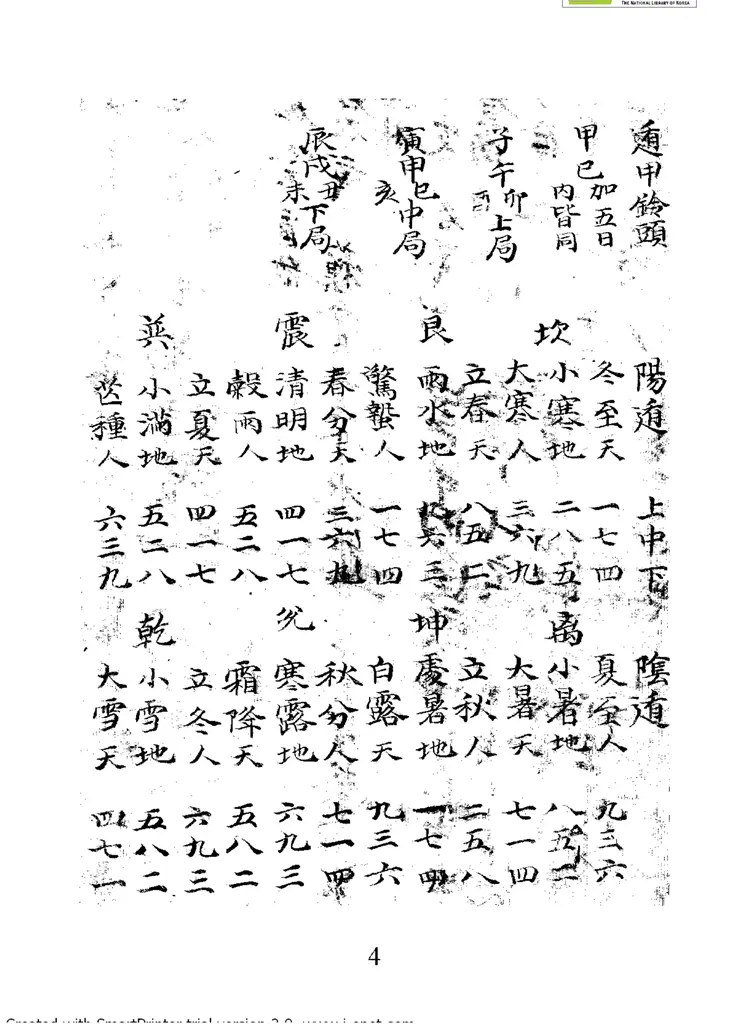 THE NATIONAL LIBRARY OF KOREA
遁甲鈴頭
甲己加五日
內皆同
子午卯酉上局
寅申巳亥中局
辰戌丑未下局
陽遁 上中下 陰遁
冬至天 一七四 夏至人 九三六
坎 小寒地 二八五 离 小暑地 八五二
大寒人 三六九 大暑天 七一四
立春天 八五二 立秋人 二五八
艮 雨水地 九六三 坤 處暑地 一七四
驚蟄人 一七四 白露天 九三六
春分天 三六九 秋分人 七一四
震 清明地 四一七 兊 寒露地 六九三
穀雨人 五二八 霜降天 五八二
立夏天 四一七 立冬人 六九三
巽 小滿地 五二八 乾 小雪地 五八二
芒種人 六三九 大雪天 四七一
4